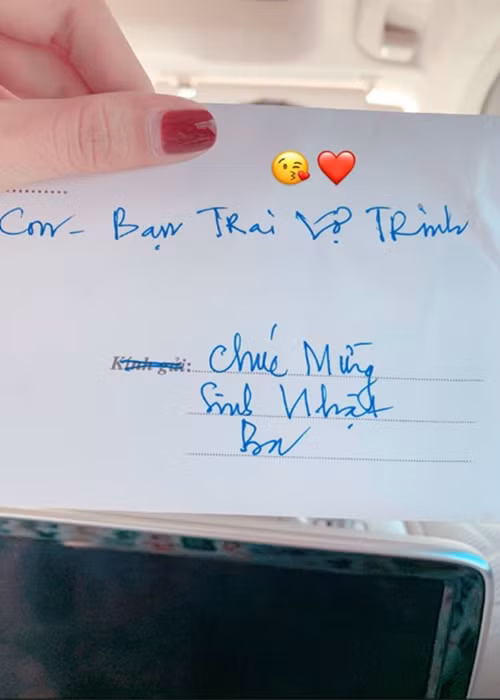 Con - Bạn Trai Vợ Trinh
Kính gửi: Chúc Mừng
Sinh Nhật
Ba